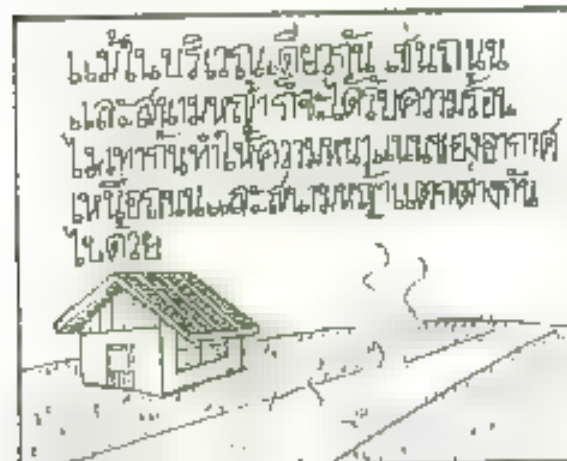 แม้ในบริเวณเดียวกัน เช่นถนน
และสนามหญ้าก็จะได้รับความร้อน
ไม่เท่ากันทำให้ความหนาแน่นของอากาศ
เหนือถนนและสนามหญ้าแตกต่างกัน
ไปด้วย